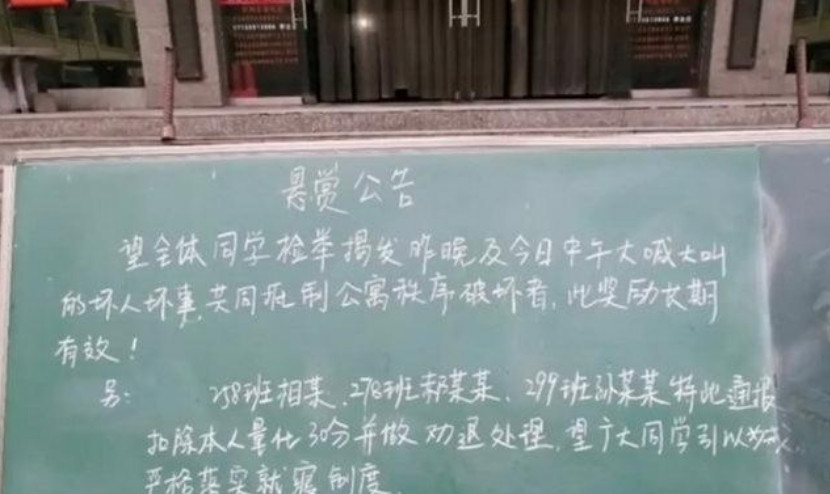 悬赏公告
望全体同学检举揭发昨晚及今日中午大喊大叫
的坏人坏事，共同抵制公寓秩序破坏者，此奖励长期
有效！
另： 258班相某、278班郝某某、299班孙某某特此通报
扣除本人量化30分并做劝退处理，望广大同学引以为戒，
严格落实就寝制度。